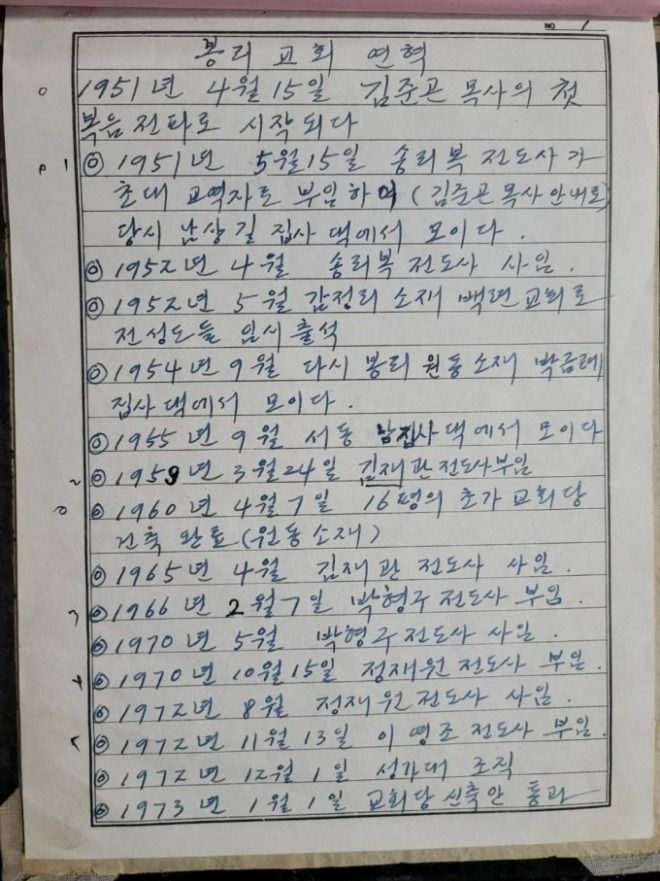 NO 1
봉리 교회 연혁
1951년 4월 15일 김준곤 목사의 첫
복음 전파로 시작되다
1 ◎ 1951년 5월 15일 송리복 전도사가
초대 교역자로 부임하여 (김준곤 목사 안내로)
당시 남상길 집사 댁에서 모이다.
◎ 1952년 4월 송리복 전도사 사임.
◎ 1952년 5월 감정리 소재 백련교회로
전성도들 임시 출석
◎ 1954년 9월 다시 봉리 원동소재 박금례
집사 댁에서 모이다.
◎ 1955년 9월 서동 남집사 댁에서 모이다
2 ◎ 1959년 3월 24일 김재관 전도사 부임
◎ 1960년 4월 7일 16평의 초가 교회당
건축 완료 (원동소재)
◎ 1965년 4월 김재관 전도사 사임.
3 ◎ 1966년 2월 7일 박형구 전도사 부임.
◎ 1970년 5월 박형구 전도사 사임.
4 ◎ 1970년 10월 15일 정재원 전도사 부임.
◎ 1972년 8월 정재원 전도사 사임.
◎ 1972년 11월 13일 이영조 전도사 부임.
◎ 1972년 12월 1일 성가대 조직
◎ 1973년 1월 1일 교회당 신축안 통과